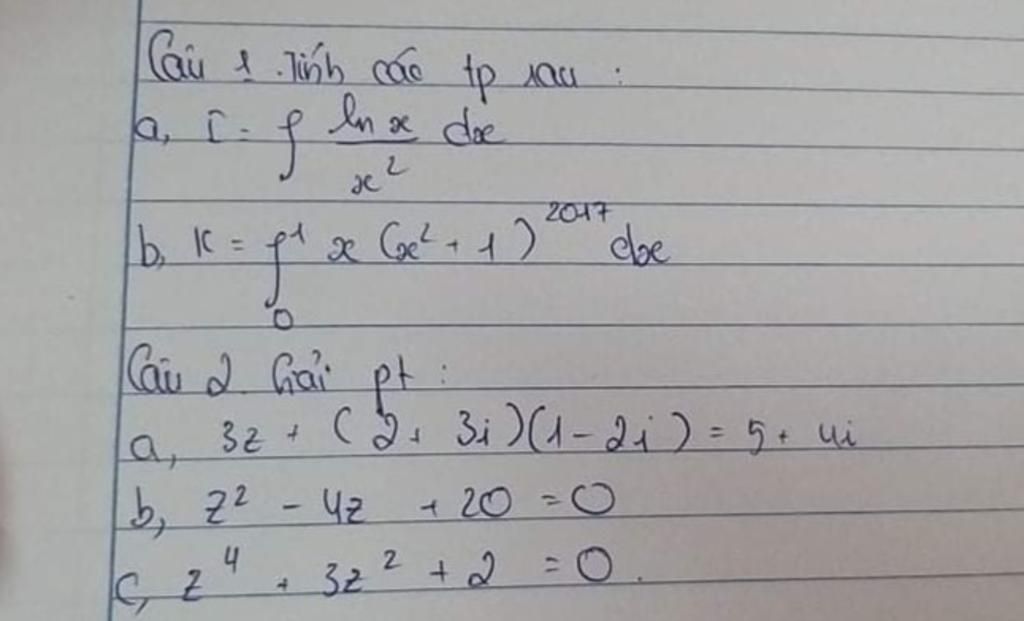 Câu 1. Tính các tp sau :
a, I = ∫ ln x / x² dx
b, K = ∫₀¹ x (x² + 1)²⁰¹⁷ dx
Câu 2. Giải pt :
a, 3z + (2 + 3i)(1 - 2i) = 5 + 4i
b, z² - 4z + 20 = 0
c, z⁴ + 3z² + 2 = 0.